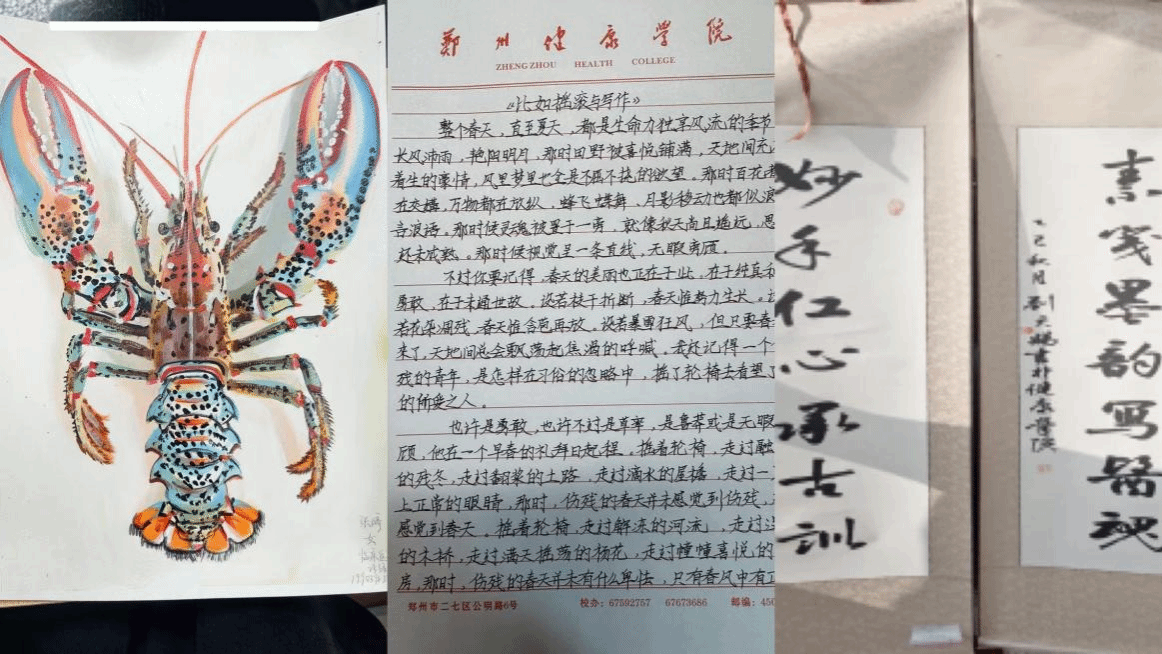 郑州健康学院
ZHENGZHOU HEALTH COLLEGE
《比如摇滚与写作》
整个春天,直至夏天,都是生命力独享风流的季节
长风沛雨,艳阳明月,那时田野被喜悦铺满,天地间充
着生的豪情,风里梦里也全是不屈不挠的欲望。那时百花
在交媾,万物都在放纵,蜂飞蝶舞、月影移动也都似浪
言浪语。那时候灵魂被置于一旁,就像秋天尚且遥远,思
还未成熟。那时候视觉呈一条直线,无暇旁顾。
不过你要记得,春天的美丽也正在于此,在于纯真和
勇敢,在于未通世故。设若枝干折断,春天惟努力生长。设
若花朵凋残,春天惟含苞再放。设若暴雪狂风,但只要春
来了,天地间总会飘荡起焦渴的呼喊。我还记得一个
残的青年,是怎样在习俗的忽略中,摇了轮椅去看望了
的所爱之人。
也许是勇敢,也许不过是草率,是鲁莽或是无暇
顾,他在一个早春的礼拜日起程。摇着轮椅,走过融
的残冬,走过翻浆的土路,走过滴水的屋檐,走过一
上正常的眼睛,那时,伤残的春天并未感觉到伤残,
感觉到春天。摇着轮椅,走过解冻的河流,走过
的木桥,走过满天摇荡的杨花,走过幢幢喜悦的
房,那时,伤残的春天并未有什么卑怯,只有春风中有
郑州市二七区公明路6号 校办:67592757 67673686 邮编:450
妙手仁心承古训
素笺墨韵写醫魂
乙巳秋月